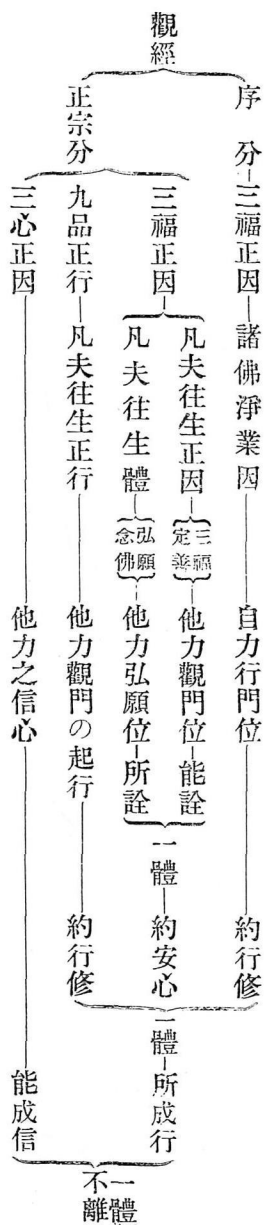 觀經
序分―三福正因―諸佛淨業因―自力行門位―約行修
正宗分
三福正因
凡夫往生正因
三福
定善
他力觀門位―能詮
凡夫往生體
弘願
念佛
他力弘願位―所詮
一體―約安心
九品正行―凡夫往生正行―他力觀門の起行―約行修
一體―所成行
三心正因―他力之信心―能成信
一體
不離